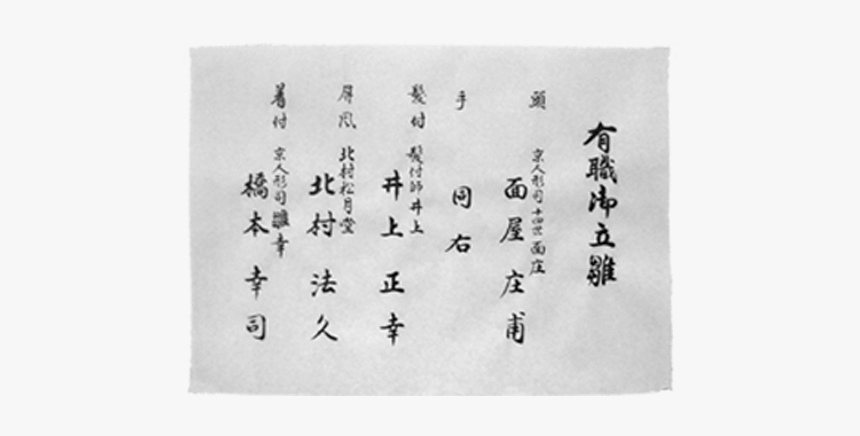 有職御立雛
頭 京人形司 十四世 面庄
面屋庄甫
手 同右
髪付 髪付師 井上
井上正幸
屏風 北村松月堂
北村法久
着付 京人形司 雛幸
橋本幸司